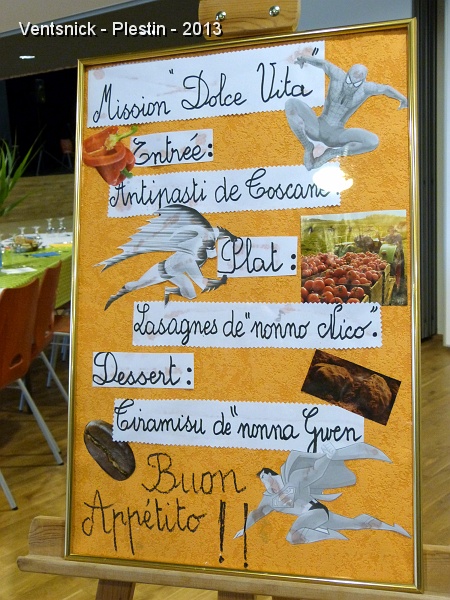 Ventsnick - Plestin - 2013
Mission "Dolce Vita"
Entrée:
Antipasti de Toscane.
Plat:
Lasagnes de "nonno Nico".
Dessert:
Tiramisu de "nonna Gwen
Buon
Appétito !!